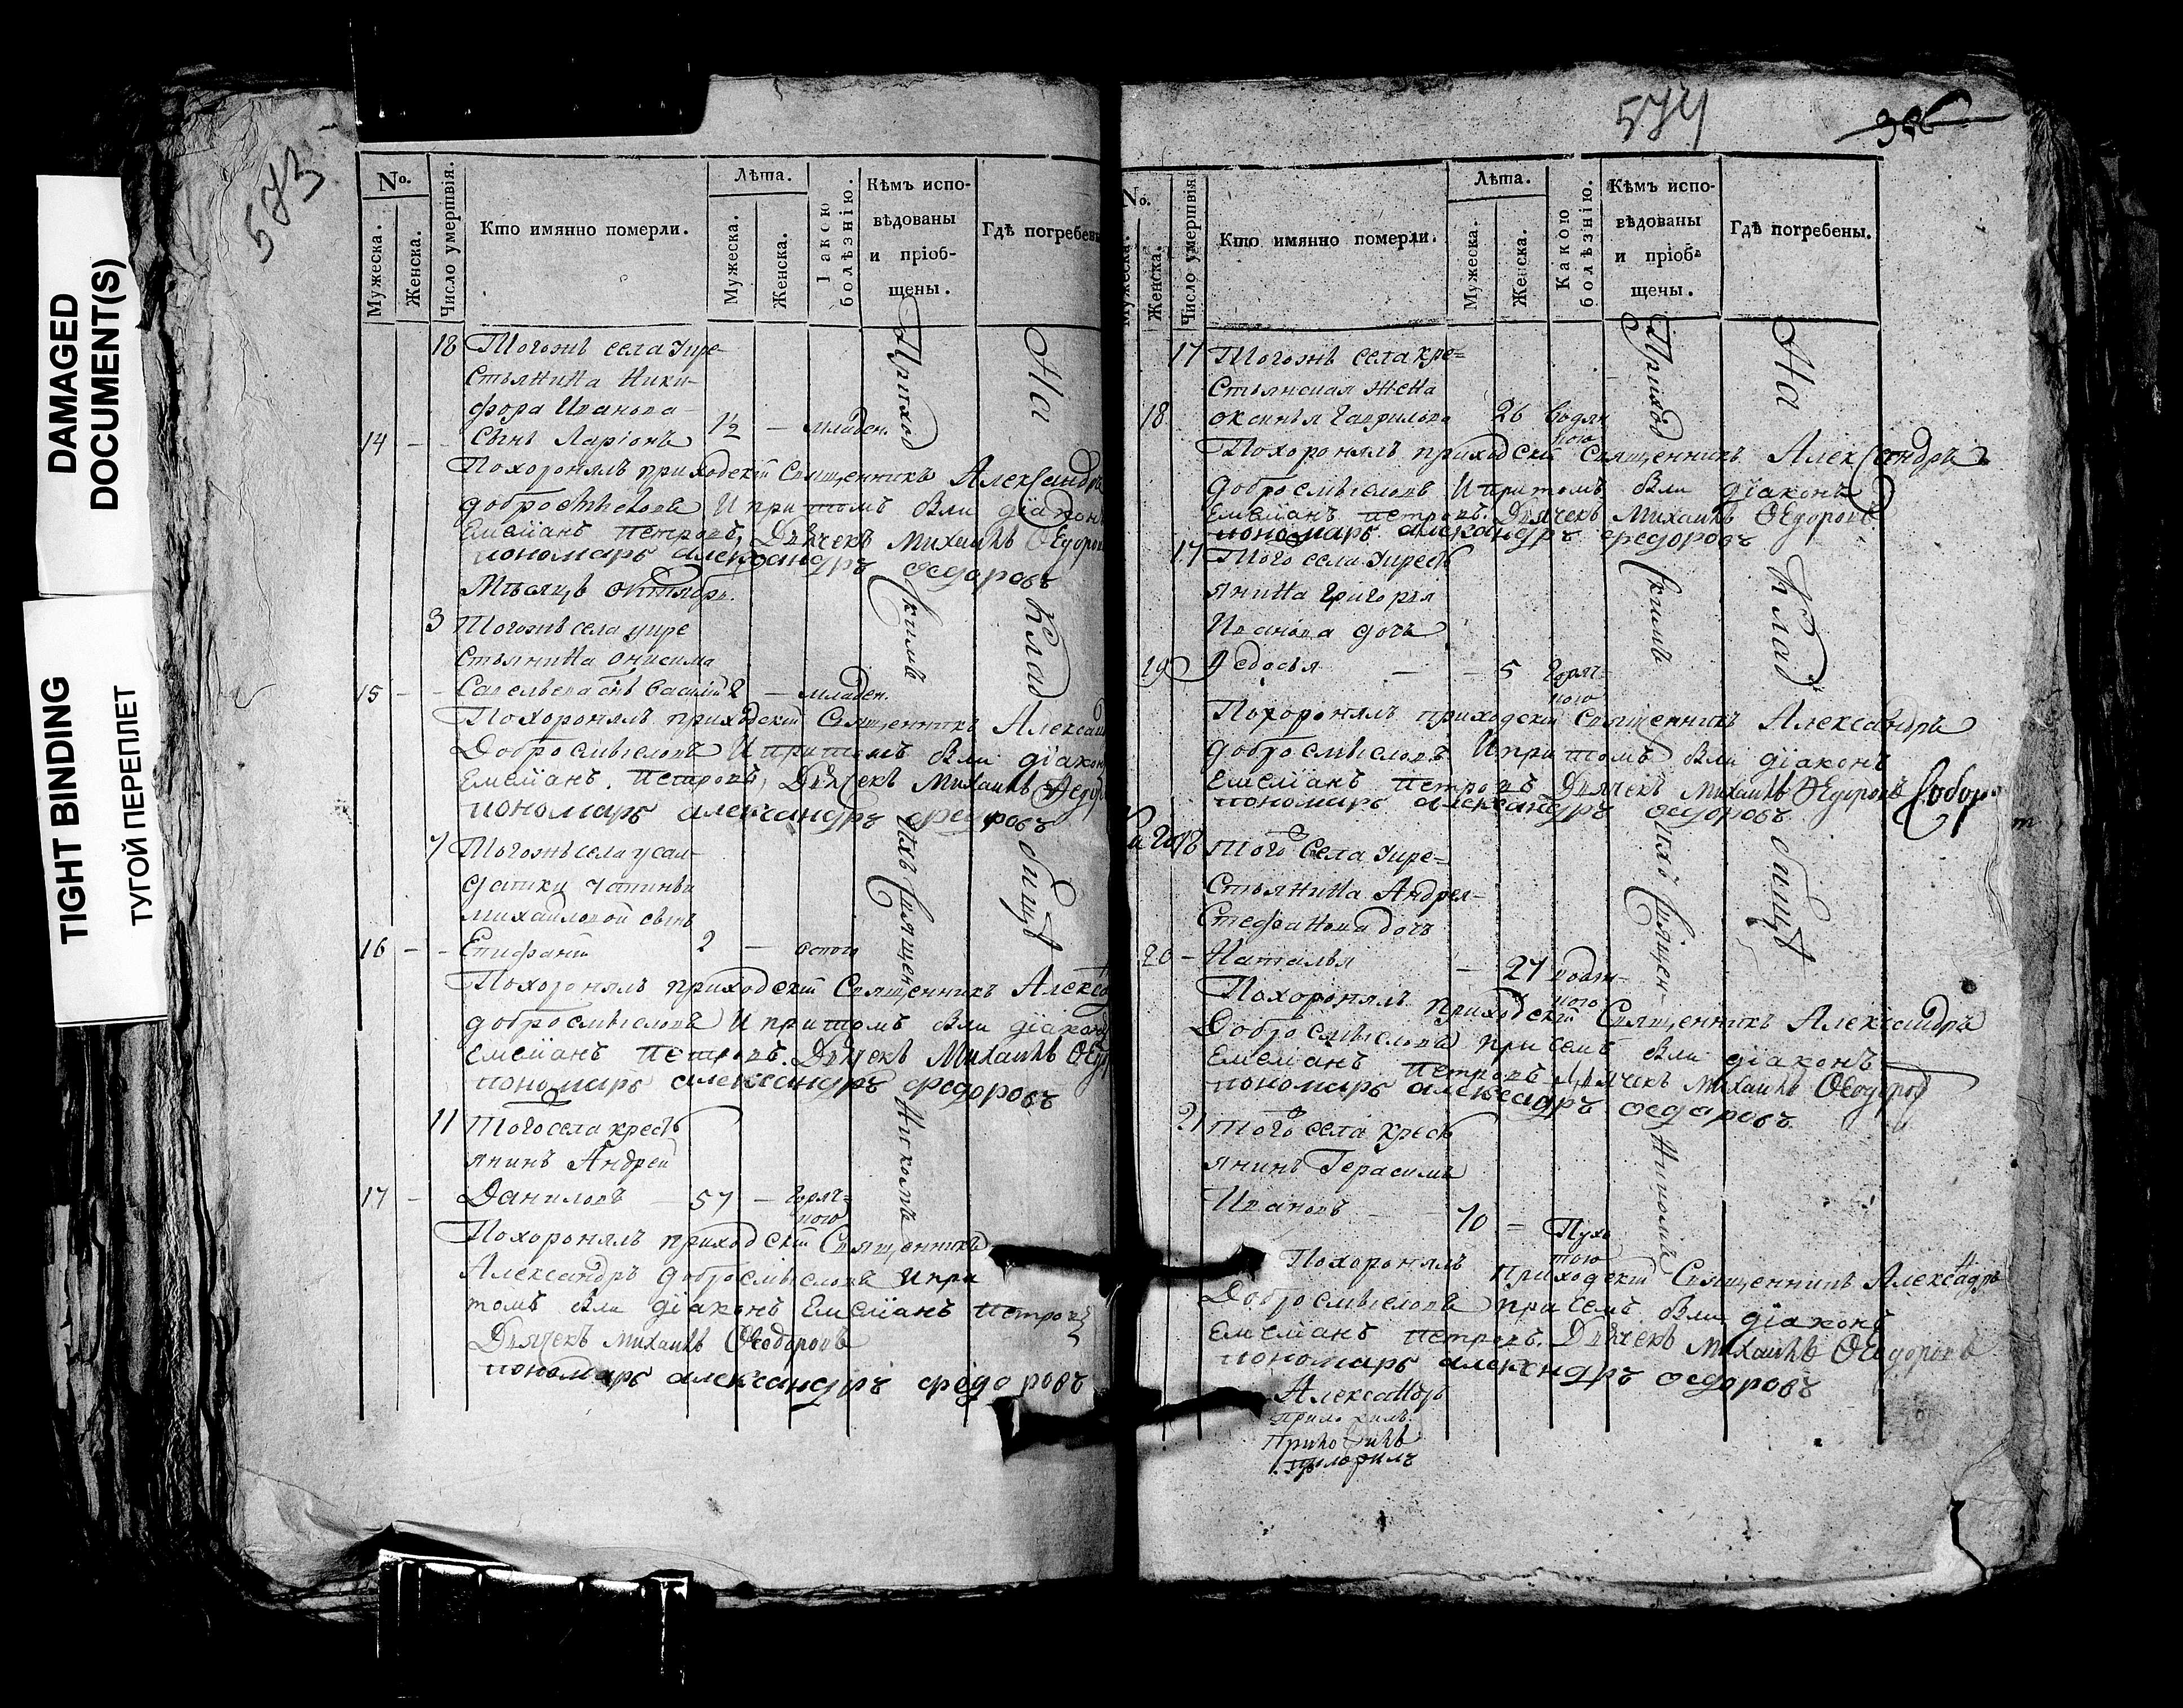 DAMAGED
DOCUMENT(S)
TIGHT BINDING
ТУГОЙ ПЕРЕПЛЕТ
573
No.
Мужеска.
Женска.
Число умертвія.
Кто имянно померли.
Лѣта.
Мужеска.
Женска.
болѣзнію.
Кѣмъ испо-
вѣдованы
и пріоб-
щены.
Гдѣ погребены
18 Тогожъ села кре-
стьянина Ники-
фора Иванова
14 - - сынъ Ларіонъ 1½ - младен.
Похоронялъ приходскій Священникъ Александръ
Добросмысловъ И притомъ были діаконъ
Емеліанъ Петровъ, Дьячекъ Михаилъ Ѳедоров
пономарь александръ федоровъ
Мѣсяцъ октябрь.
3 Тогожъ села кре
стьянина Онисима
15 - - Савельева снъ Василій 2 - младен.
Похоронялъ приходскій Священникъ Александ
Добросмысловъ И притомъ были діакон
Емеліанъ Петровъ, Дьячекъ Михаилъ Ѳедо
пономарь александръ федоровъ
7 Тогожъ села усол-
датки
Михайловой сынъ
16 - - Епифаній 2 - оспою
Похоронялъ приходскій Священникъ Алекса
Добросмысловъ И притомъ были діаконъ
Емеліанъ Петровъ Дьячекъ Михаилъ Ѳед
пономарь александръ федоровъ
11 Того села кресть
янинъ Андрей
17 - Даниловъ - 57 - горяч=
кою
Похоронялъ приходскій Священникъ
Александръ Добросмысловъ И при
томъ были діаконъ Емеліанъ Петровъ
Дьячекъ Михаилъ Ѳеодоровъ
пономарь александръ федоровъ
Приход
скимъ
Священ
Никомъ
На
Клад
бищѣ
574
No.
Мужеска.
Женска.
Число умертвія.
Кто имянно померли.
Лѣта.
Мужеска.
Женска.
Какою
болѣзнію.
Кѣмъ испо-
вѣдованы
и пріоб-
щены.
Гдѣ погребены.
17 Тогожъ села кре=
стьянская жена
18 оксинья Гаврилова 26 водян
кою
Похоронялъ приходскій Священникъ Александръ
Добросмысловъ И притомъ были діаконъ
Емеліанъ Петровъ. Дьячекъ Михаилъ Ѳедоровъ
пономарь александръ федоровъ
17 Того села кресть
янина Григорья
Иванова дочь
19 Ѳедосья - - 5 горяч=
кою
Похоронялъ приходскій Священникъ Александръ
Добросмысловъ И притомъ были діаконъ
Емеліанъ Петровъ Дьячекъ Михаилъ Ѳедоровъ
пономарь александръ федоровъ
18 Того Села кре=
стьянина Андрея
Стефанова дочь
20 - Наталья - 27 водян-
кою
Похоронялъ приходскій Священникъ Александръ
Добросмысловъ при семъ были діаконъ
Емеліанъ Петровъ Дьячекъ Михаилъ Ѳеодоров
пономарь александръ федаровъ
21 Того села кресть
янинъ Герасимъ
Ивановъ - - 70 =
Похоронялъ приходскій Священникъ Александръ
Добросмысловъ при семъ были діаконъ
Емеліанъ Петровъ. Дьячекъ Михаилъ Ѳеодоровъ
пономарь александръ федоровъ
Александръ
Приход
скимъ
Священ-
Никомъ
На
Клад
бищѣ